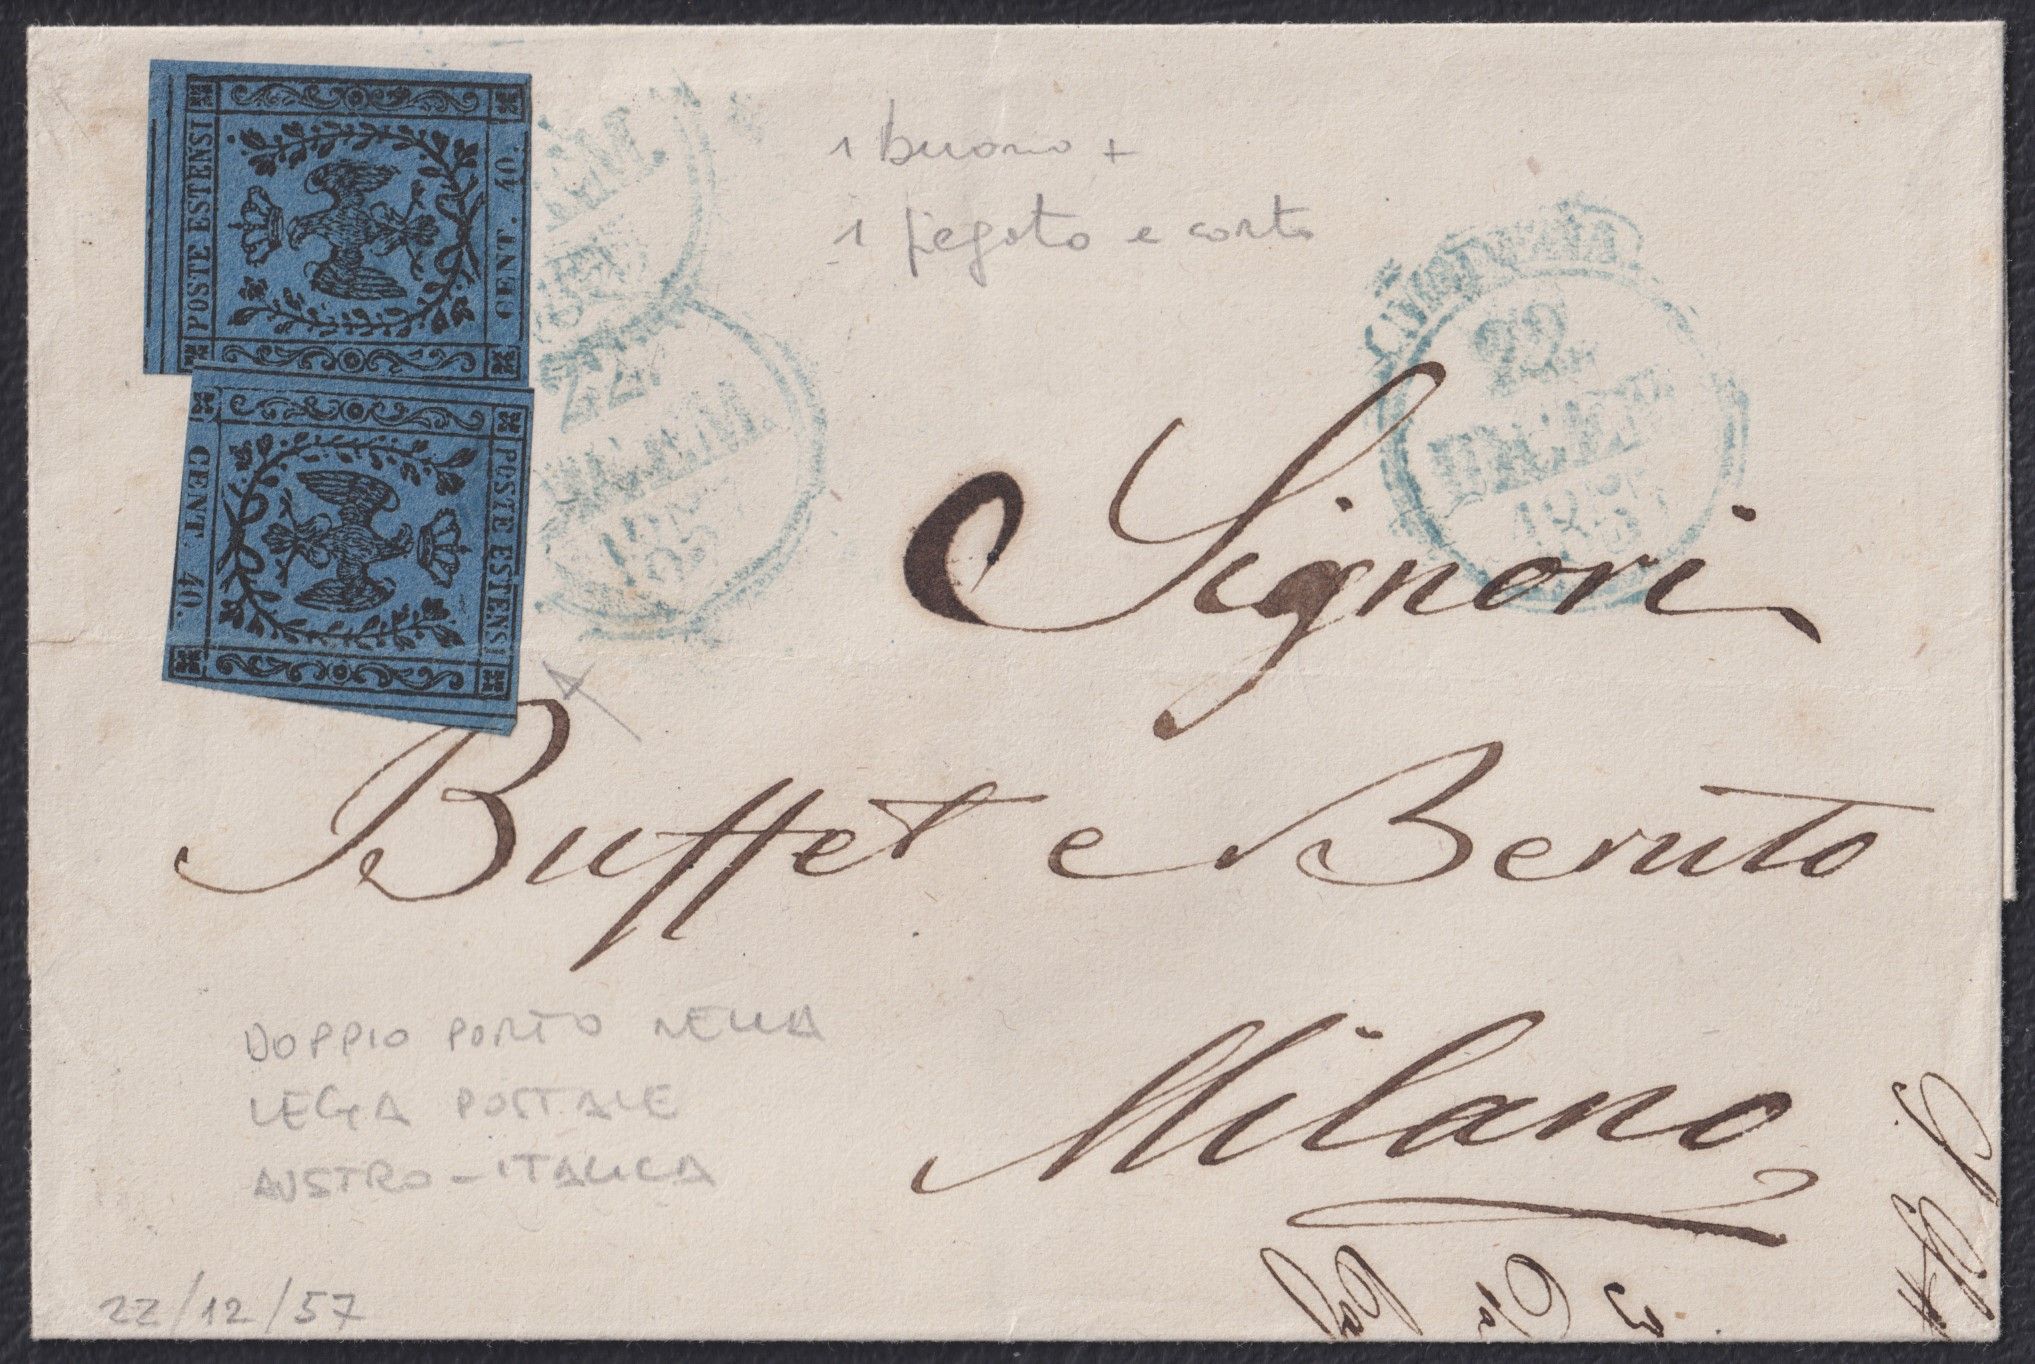 POSTE ESTENSI
CENT. 40.
POSTE ESTENSI
CENT. 40.
1 buono +
1 piegato e corto
MODENA
22
1857
22
Signori
Buffet e Beruto
Milano
DOPPIO PORTO NELLA
LEGA POSTALE
AUSTRO-ITALICA
22/12/57